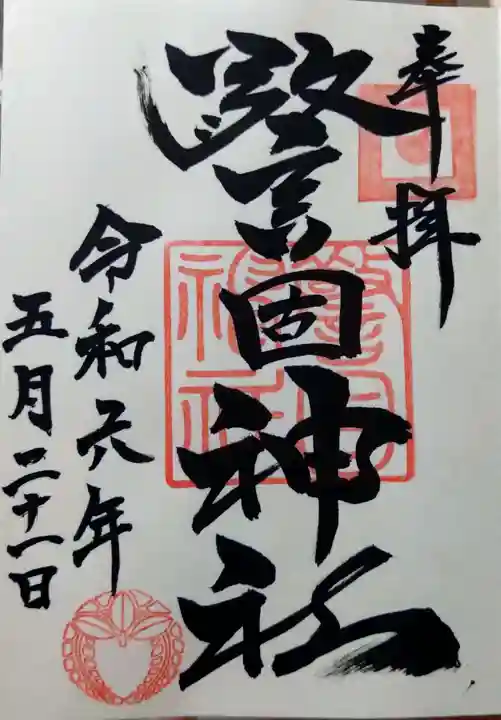 奉拝
警固神社
警固
神社
令和六年
五月二十一日